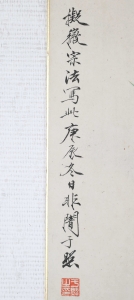 擬徽宗法寫此庚辰冬日非闇于照